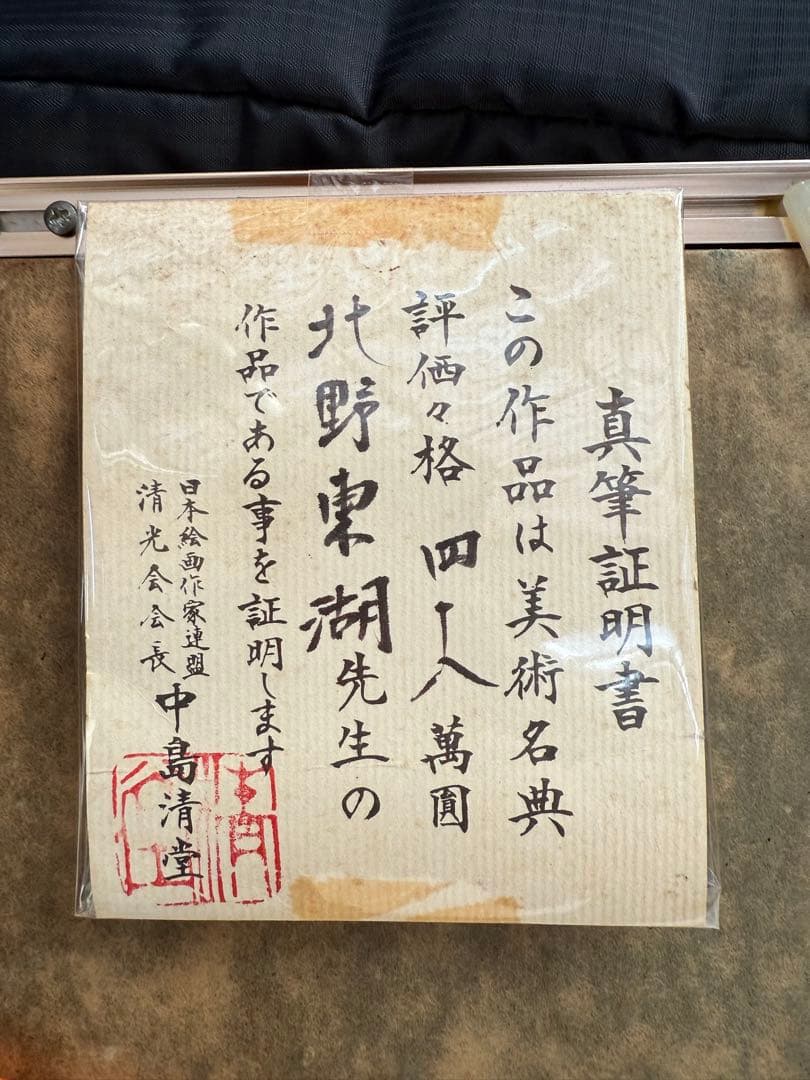 真筆証明書
この作品は美術名典
評価々格 四十八萬圓
北野東湖先生の
作品である事を証明します
日本絵画作家連盟
清光会会長 中島清堂